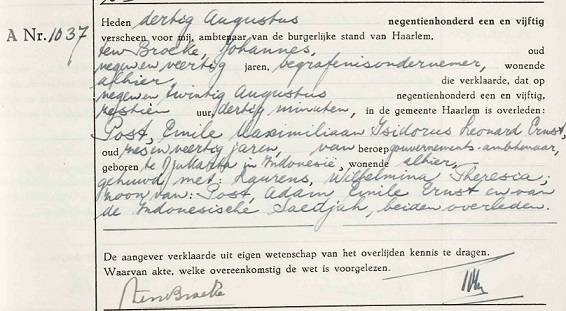 A Nr. 1037
Heden dertig Augustus negentienhonderd een en vijftig
verscheen voor mij, ambtenaar van de burgerlijke stand van Haarlem.
ten Broeke, Johannes, oud
negen en veertig jaren, begrafenisondernemer, wonende
alhier, die verklaarde, dat op
negen en twintig Augustus negentienhonderd een en vijftig,
zestien uur, dertig minuten, in de gemeente Haarlem is overleden:
Post, Emile Maximiliaan Isidorus Leonard Ernst,
oud zes en veertig jaren, van beroep gouvernements-ambtenaar,
geboren te Djakarta in Indonesië, wonende alhier,
gehuwd met: Laurens, Wilhelmina Theresia;
zoon van: Post, Adam Emile Ernst en van
de Indonesische Saedjah, beiden overleden.
De aangever verklaarde uit eigen wetenschap van het overlijden kennis te dragen.
Waarvan akte, welke overeenkomstig de wet is voorgelezen.
ten Broeke